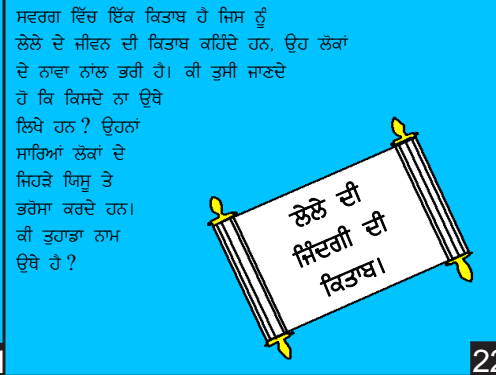 ਸਵਰਗ ਵਿੱਚ ਇੱਕ ਕਿਤਾਬ ਹੈ ਜਿਸ ਨੂੰ
ਲੇਲੇ ਦੇ ਜੀਵਨ ਦੀ ਕਿਤਾਬ ਕਹਿੰਦੇ ਹਨ, ਉਹ ਲੋਕਾਂ
ਦੇ ਨਾਵਾ ਨਾਂਲ ਭਰੀ ਹੈ। ਕੀ ਤੁਸੀ ਜਾਣਦੇ
ਹੋ ਕਿ ਕਿਸਦੇ ਨਾ ਉਥੇ
ਲਿਖੇ ਹਨ ? ਉਹਨਾਂ
ਸਾਰਿਆਂ ਲੋਕਾਂ ਦੇ
ਜਿਹੜੇ ਯਿਸੂ ਤੇ
ਭਰੋਸਾ ਕਰਦੇ ਹਨ।
ਕੀ ਤੁਹਾਡਾ ਨਾਮ
ਉਥੇ ਹੈ ?
ਲੇਲੇ ਦੀ
ਜਿੰਦਗੀ ਦੀ
ਕਿਤਾਬ।
22